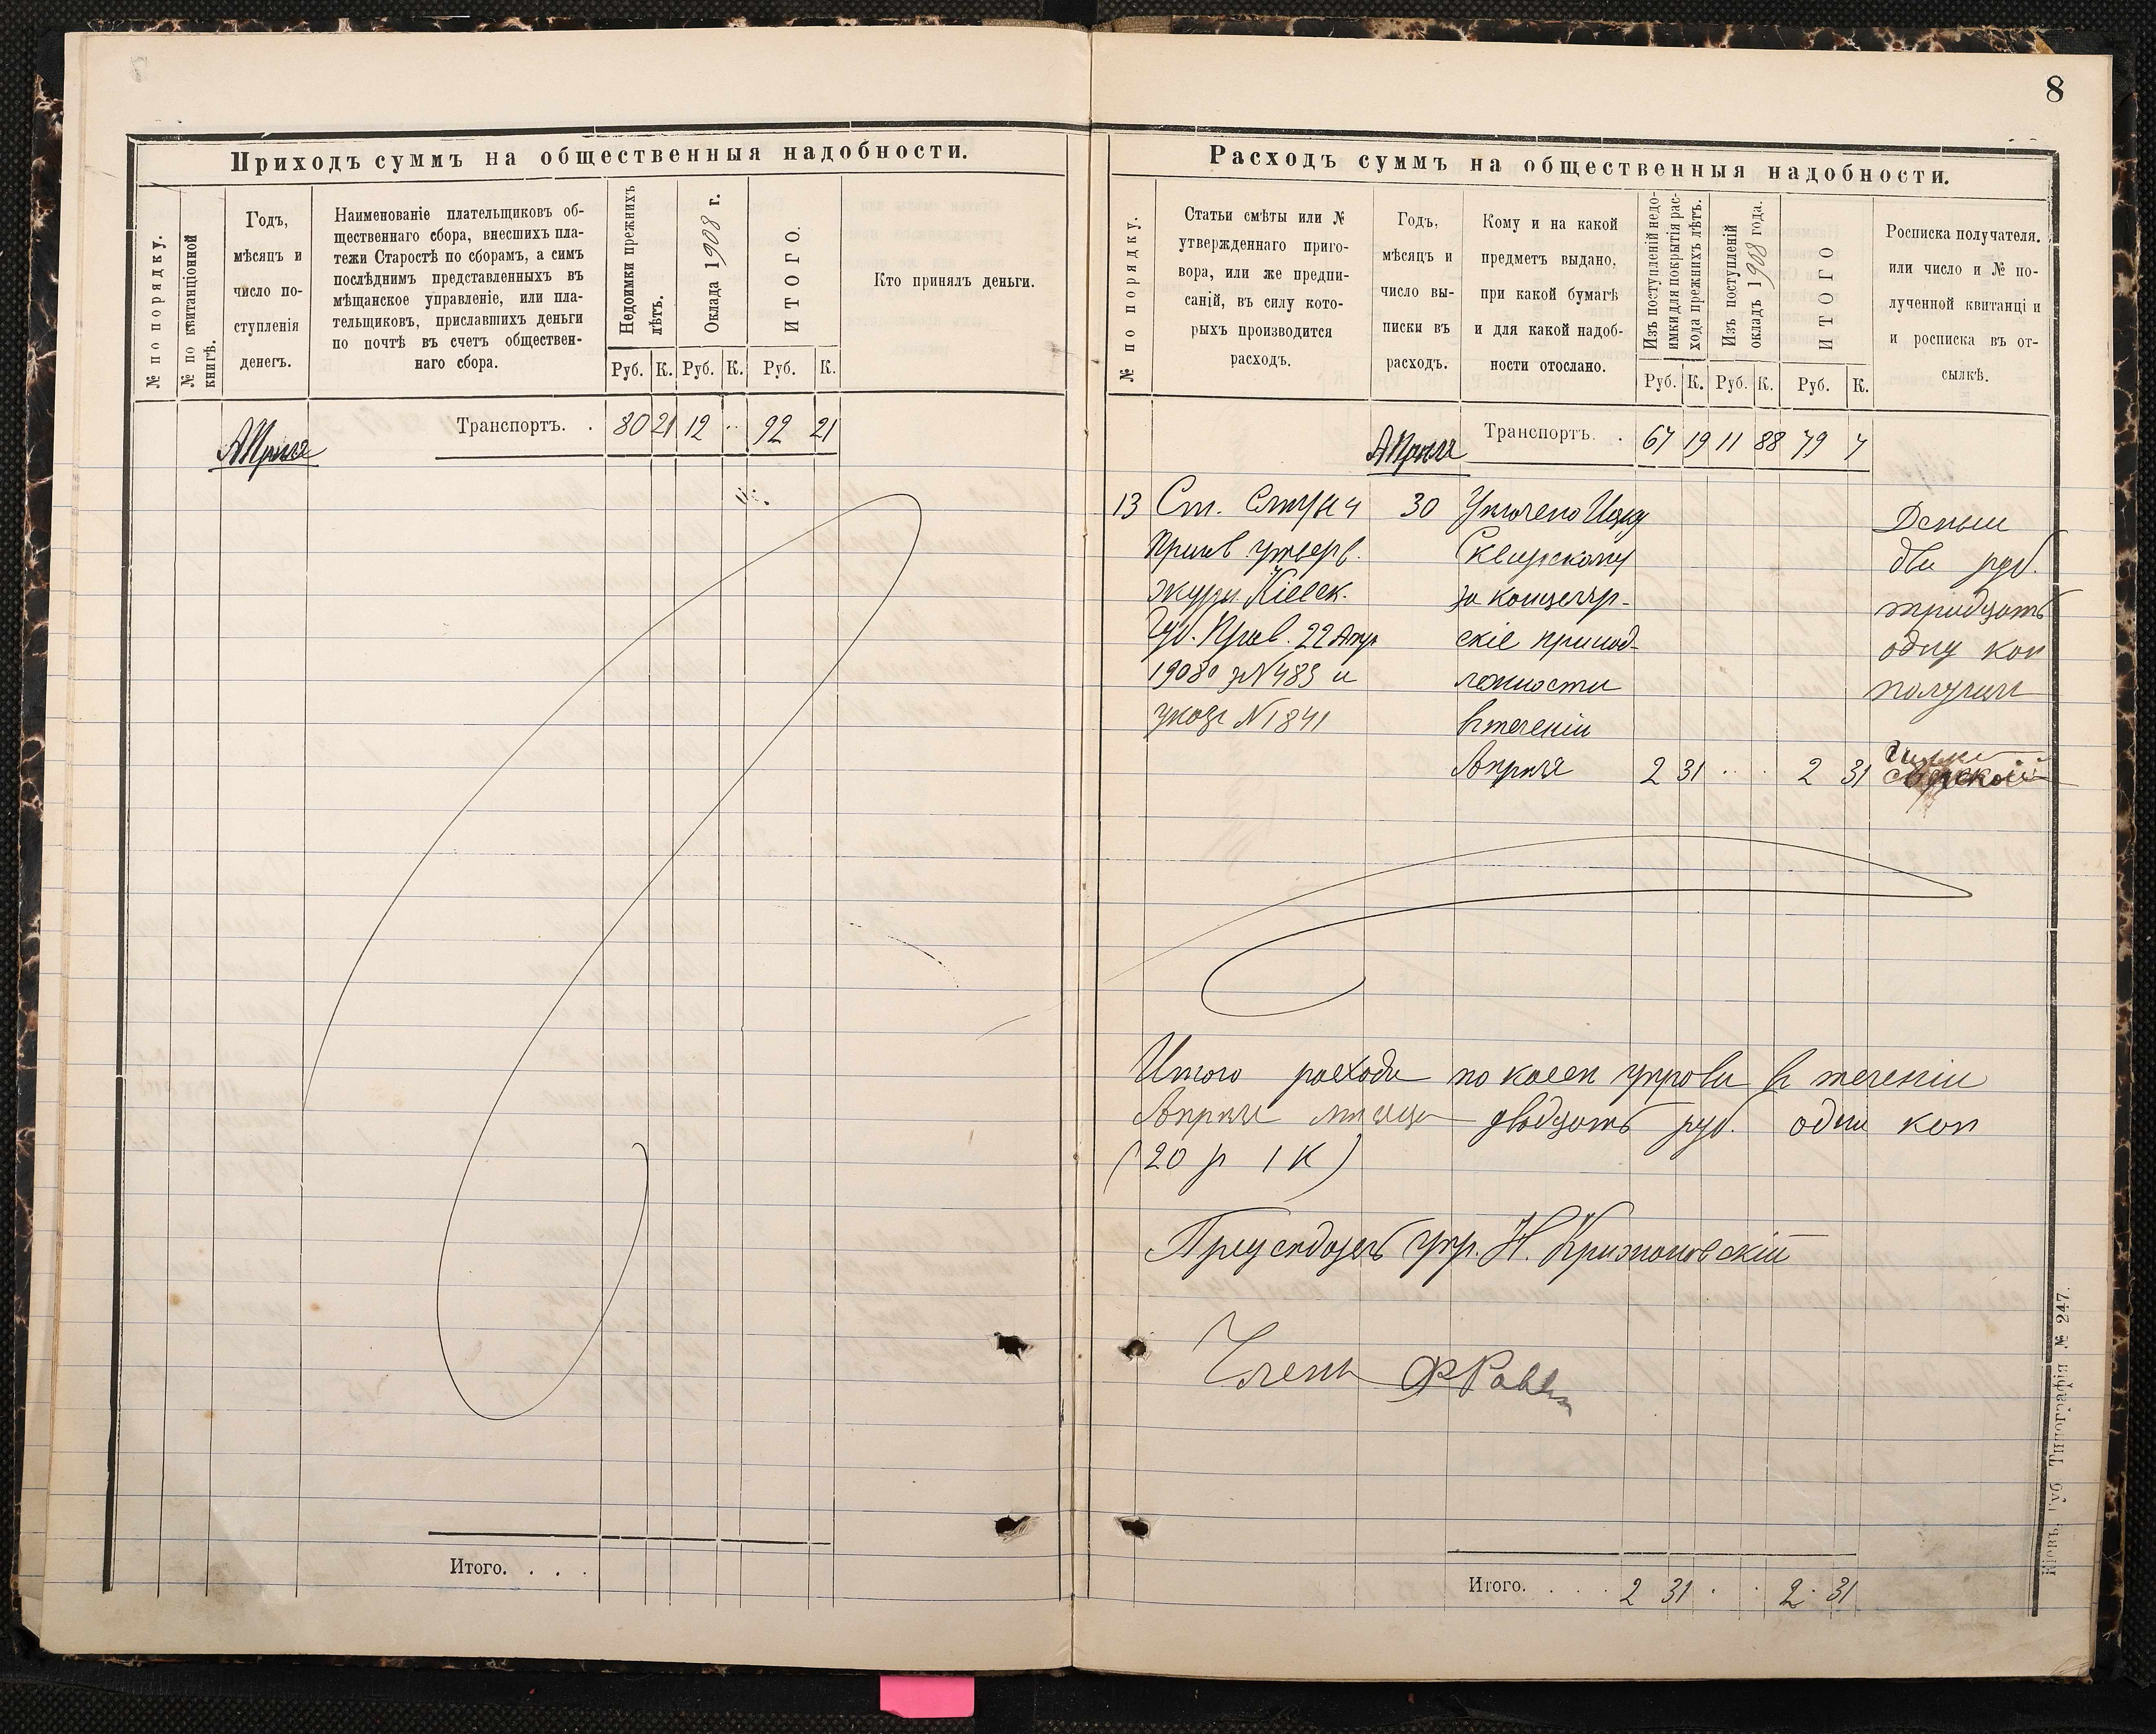 8
Приходъ суммъ на общественныя надобности.
№ по порядку.
№ по квитанціонной
книгѣ.
Годъ,
мѣсяцъ и
число по-
ступленія
денегъ.
Наименованіе плательщиковъ об-
щественнаго сбора, внесшихъ пла-
тежи Старостѣ по сборамъ, а симъ
послѣднимъ представленныхъ въ
мѣщанское управленіе, или пла-
тельщиковъ, приславшихъ деньги
по почтѣ въ счетъ обществен-
наго сбора.
Недоимки прежнихъ
лѣтъ.
Оклада 1908 г.
ИТОГО.
Кто принялъ деньги.
Руб. К. Руб. К. Руб. К.
Транспортъ. . 80 21 12 .. 92 21
Апрѣля
Итого. . . .
Расходъ суммъ на общественныя надобности.
№ по порядку.
Статьи смѣты или №
утвержденнаго приго-
вора, или же предпи-
саній, въ силу кото-
рыхъ производится
расходъ.
Годъ,
мѣсяцъ и
число вы-
писки въ
расходъ.
Кому и на какой
предметъ выдано,
при какой бумагѣ
и для какой надоб-
ности отослано.
Изъ поступленій недо-
имки для покрытія рас-
хода прежнихъ лѣтъ.
Изъ поступленій
окладъ 1908 года.
ИТОГО
Росписка получателя.
или число и № по-
лученной квитанціи
и росписка въ от-
сылкѣ.
Руб. К. Руб. К. Руб. К.
Транспортъ. . 67 19 11 88 79 7
Апрѣля
13 Ст. 4 30 Уплочено
Пригов. утверж. Сквирскому
журн. Кіевск. за канцеляр-
Губ. Прав. 22 Апр скіе принад-
1908 г № 483 и лежности
указ № 1841 въ теченіи
Апрѣля 2 31 .. . 2 31
Деньги
два руб.
тридцать
одну коп
получилъ
Сквирскій
Итого расхода по кассѣ управы въ теченіи
Апрѣля мѣсяца двадцать руб. одна коп
(20 р 1 к)
Предсѣдатель упр. Н. Крижановскій
Членъ
Итого. . . . 2 31 . . 2 . 31
Кіевъ, Губ Типографія № 247.